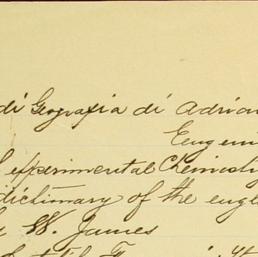 di Geografia di Adrian
Eugeni
experimental Chemist
dictionary of the engl
W. James